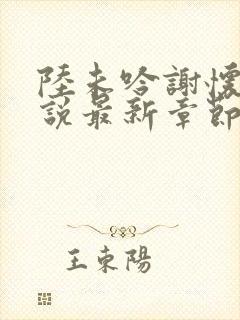 陸未吟謝懷
說最新章節
王東陽